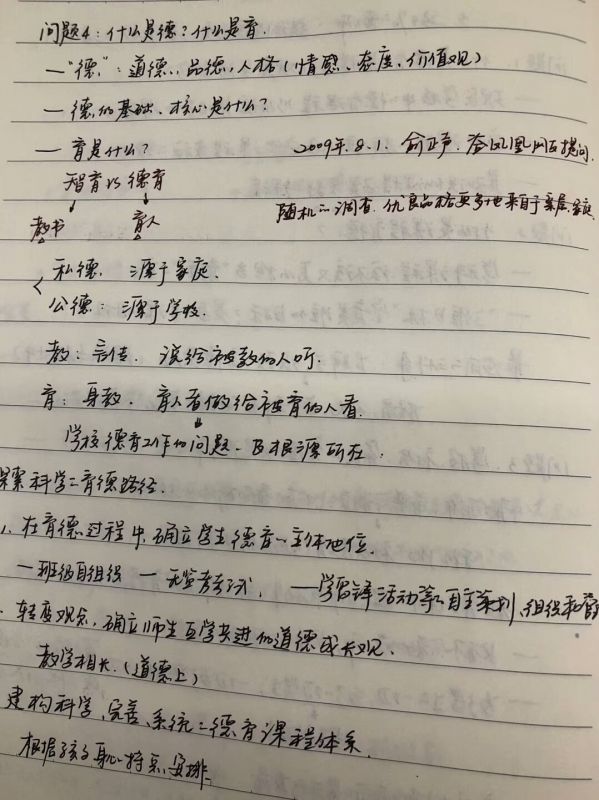 问题4：什么是德？什么是育．
—"德"：道德、品德，人格（情感、态度、价值观）
— 德的基础、核心是什么？
— 育是什么？
2009年.8.1. 俞正声．答凤凰网友提问．
智育 vs 德育
随机 调查．优良品格更多地来自于家庭
教书 育人
私德．源于家庭．
公德：源于学校．
教：言传．说给被教的人听．
育：身教．育人者做给被育的人看．
学校德育工作的问题．及根源所在：
探索科学 育德路径．
1. 在育德过程中，确立学生德育 主体地位．
— 班级自组织 — 无监考考试． —学雷锋活动等 自主策划、组织和管
．转变观点，确立师生互学共进的道德成长观．
教学相长．（道德上）
建构科学、完善、系统 德育课程体系
根据孩子身心特点安排．